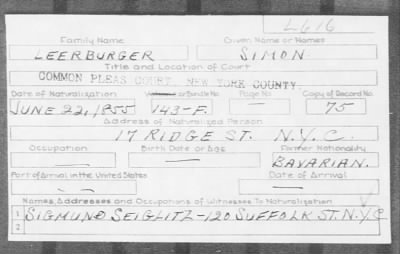 L616
Family Name Given Name or Names
LEERBURGER SIMON
Title and Location of Court
COMMON PLEAS COURT, NEW YORK COUNTY
Date of Naturalization Volume or Bundle No. Page No. Copy of Record No.
JUNE 22, 1855 143-F. — 75
Address of Naturalized Person
17 RIDGE ST. N.Y.C.
Occupation Birth Date or Age Former Nationality
— — BAVARIAN.
Port of Arrival in the United States Date of Arrival
— —
Names, Addresses and Occupations of Witnesses To Naturalization
1 SIGMUND SEIGLITZ-120 SUFFOLK ST. N.Y.C
2